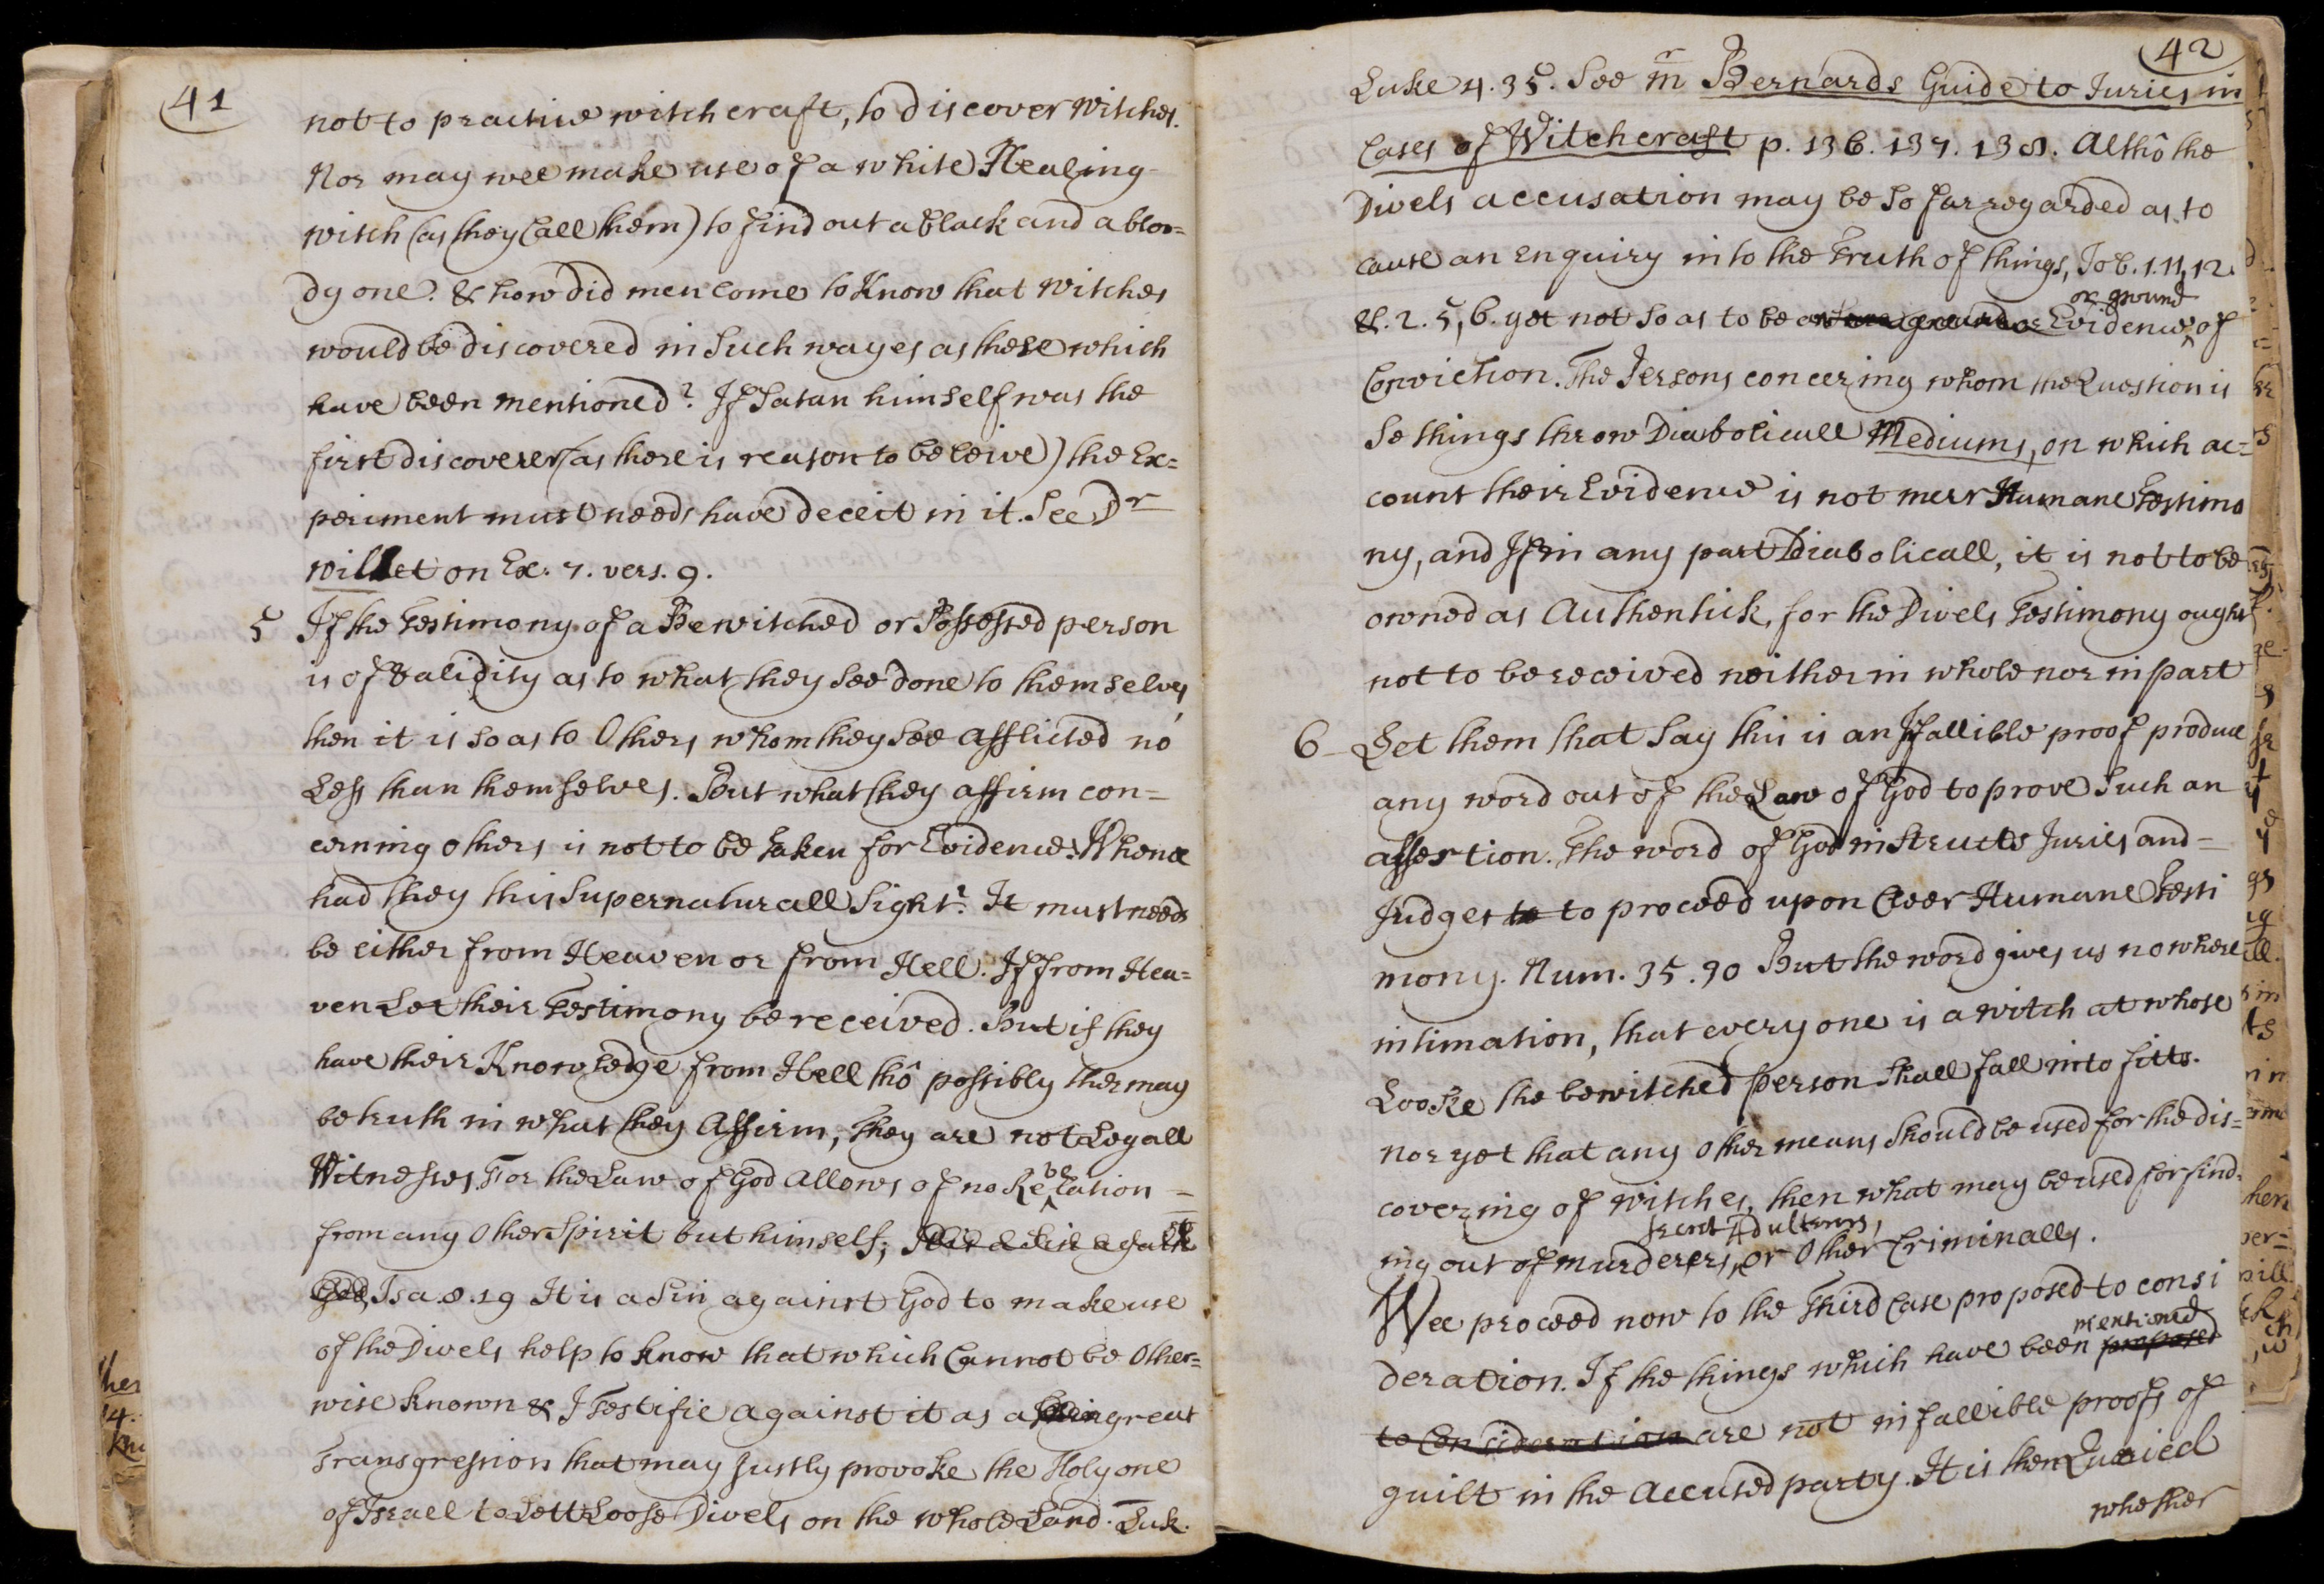 41
not to practice witchcraft, to discover witches.
Nor may wee make use of a white Healing
witch (as they Call them) to find out a black and a bloo=
dy one. & how did men come to Know that witches
would be discovered in Such wayes as these which
have been mentioned? If Satan himself was the
first discoverer (as there is reason to beleive) the Ex=
periment must needs have deceit in it. See Dr
willet on Ex. 7. vers. 9.
5 If the Testimony of a Bewitched or Possessed person
is of validity as to what they see done to themselves,
then it is so as to Others whom they see afflicted no
Less than themselves. But what they affirm con=
cerning others is not to be taken for Evidence. Whence
had they this Supernaturall Sight? It must needs
be either from Heaven or from Hell. If from Hea=
ven Let their Testimony be received. But if they
have their Knowledge from Hell thô possibly ther may
be truth in what they Affirm, they are not Legall
Witnesses. For the Law of God allows of no Revelation =
from any Other Spirit but himself; It is a Sin against
God Isa. 8. 19 It is a Sin against God to make use
of the Divels help to know that which Cannot be Other=
wise known & I Testifie against it as a great
Transgression that may justly provoke the Holy one
of Israell to Lett Loose Divels on the whole Land. Luk.
42
Luke 4. 35. See mr Bernards Guide to Juries in
Cases of Witchcraft p. 136. 137. 138. Althô the
Divels accusation may be so far regarded as to
cause an enquiry into the Truth of things, Job. 1. 11, 12.
&. 2. 5, 6. yet not so as to be an Evidence or ground of
Conviction. The Persons concering whom the Question is
Se things throw Diabolicall Mediums, on which ac=
count their Evidence is not meer Humane Testimo
ny, and If in any part Diabolicall, it is not to be
owned as Authentick, for the Divels Testimony ought
not to be received neither in whole nor in part
6 Let them that Say this is an Ifallible proof produce
any word out of the Law of God to prove Such an
assertion. The word of God instructs Juries and =
Judges to to proceed upon Cleer Humane Testi
mony. Num. 35. 30 But the word gives us no where
intimation, that every one is a witch at whose
Looke the bewitched person Shall fall into fitts.
nor yet that any other means should be used for the dis=
covering of witches, then what may be used for find=
ing out of murderers, secret Adulterers, or Other Criminalls.
Wee proceed now to the Third Case proposed to consi
deration. If the things which have been proposed mentioned
to Consideration are not infallible proofs of
guilt in the Accused party. It is then Queried
whether